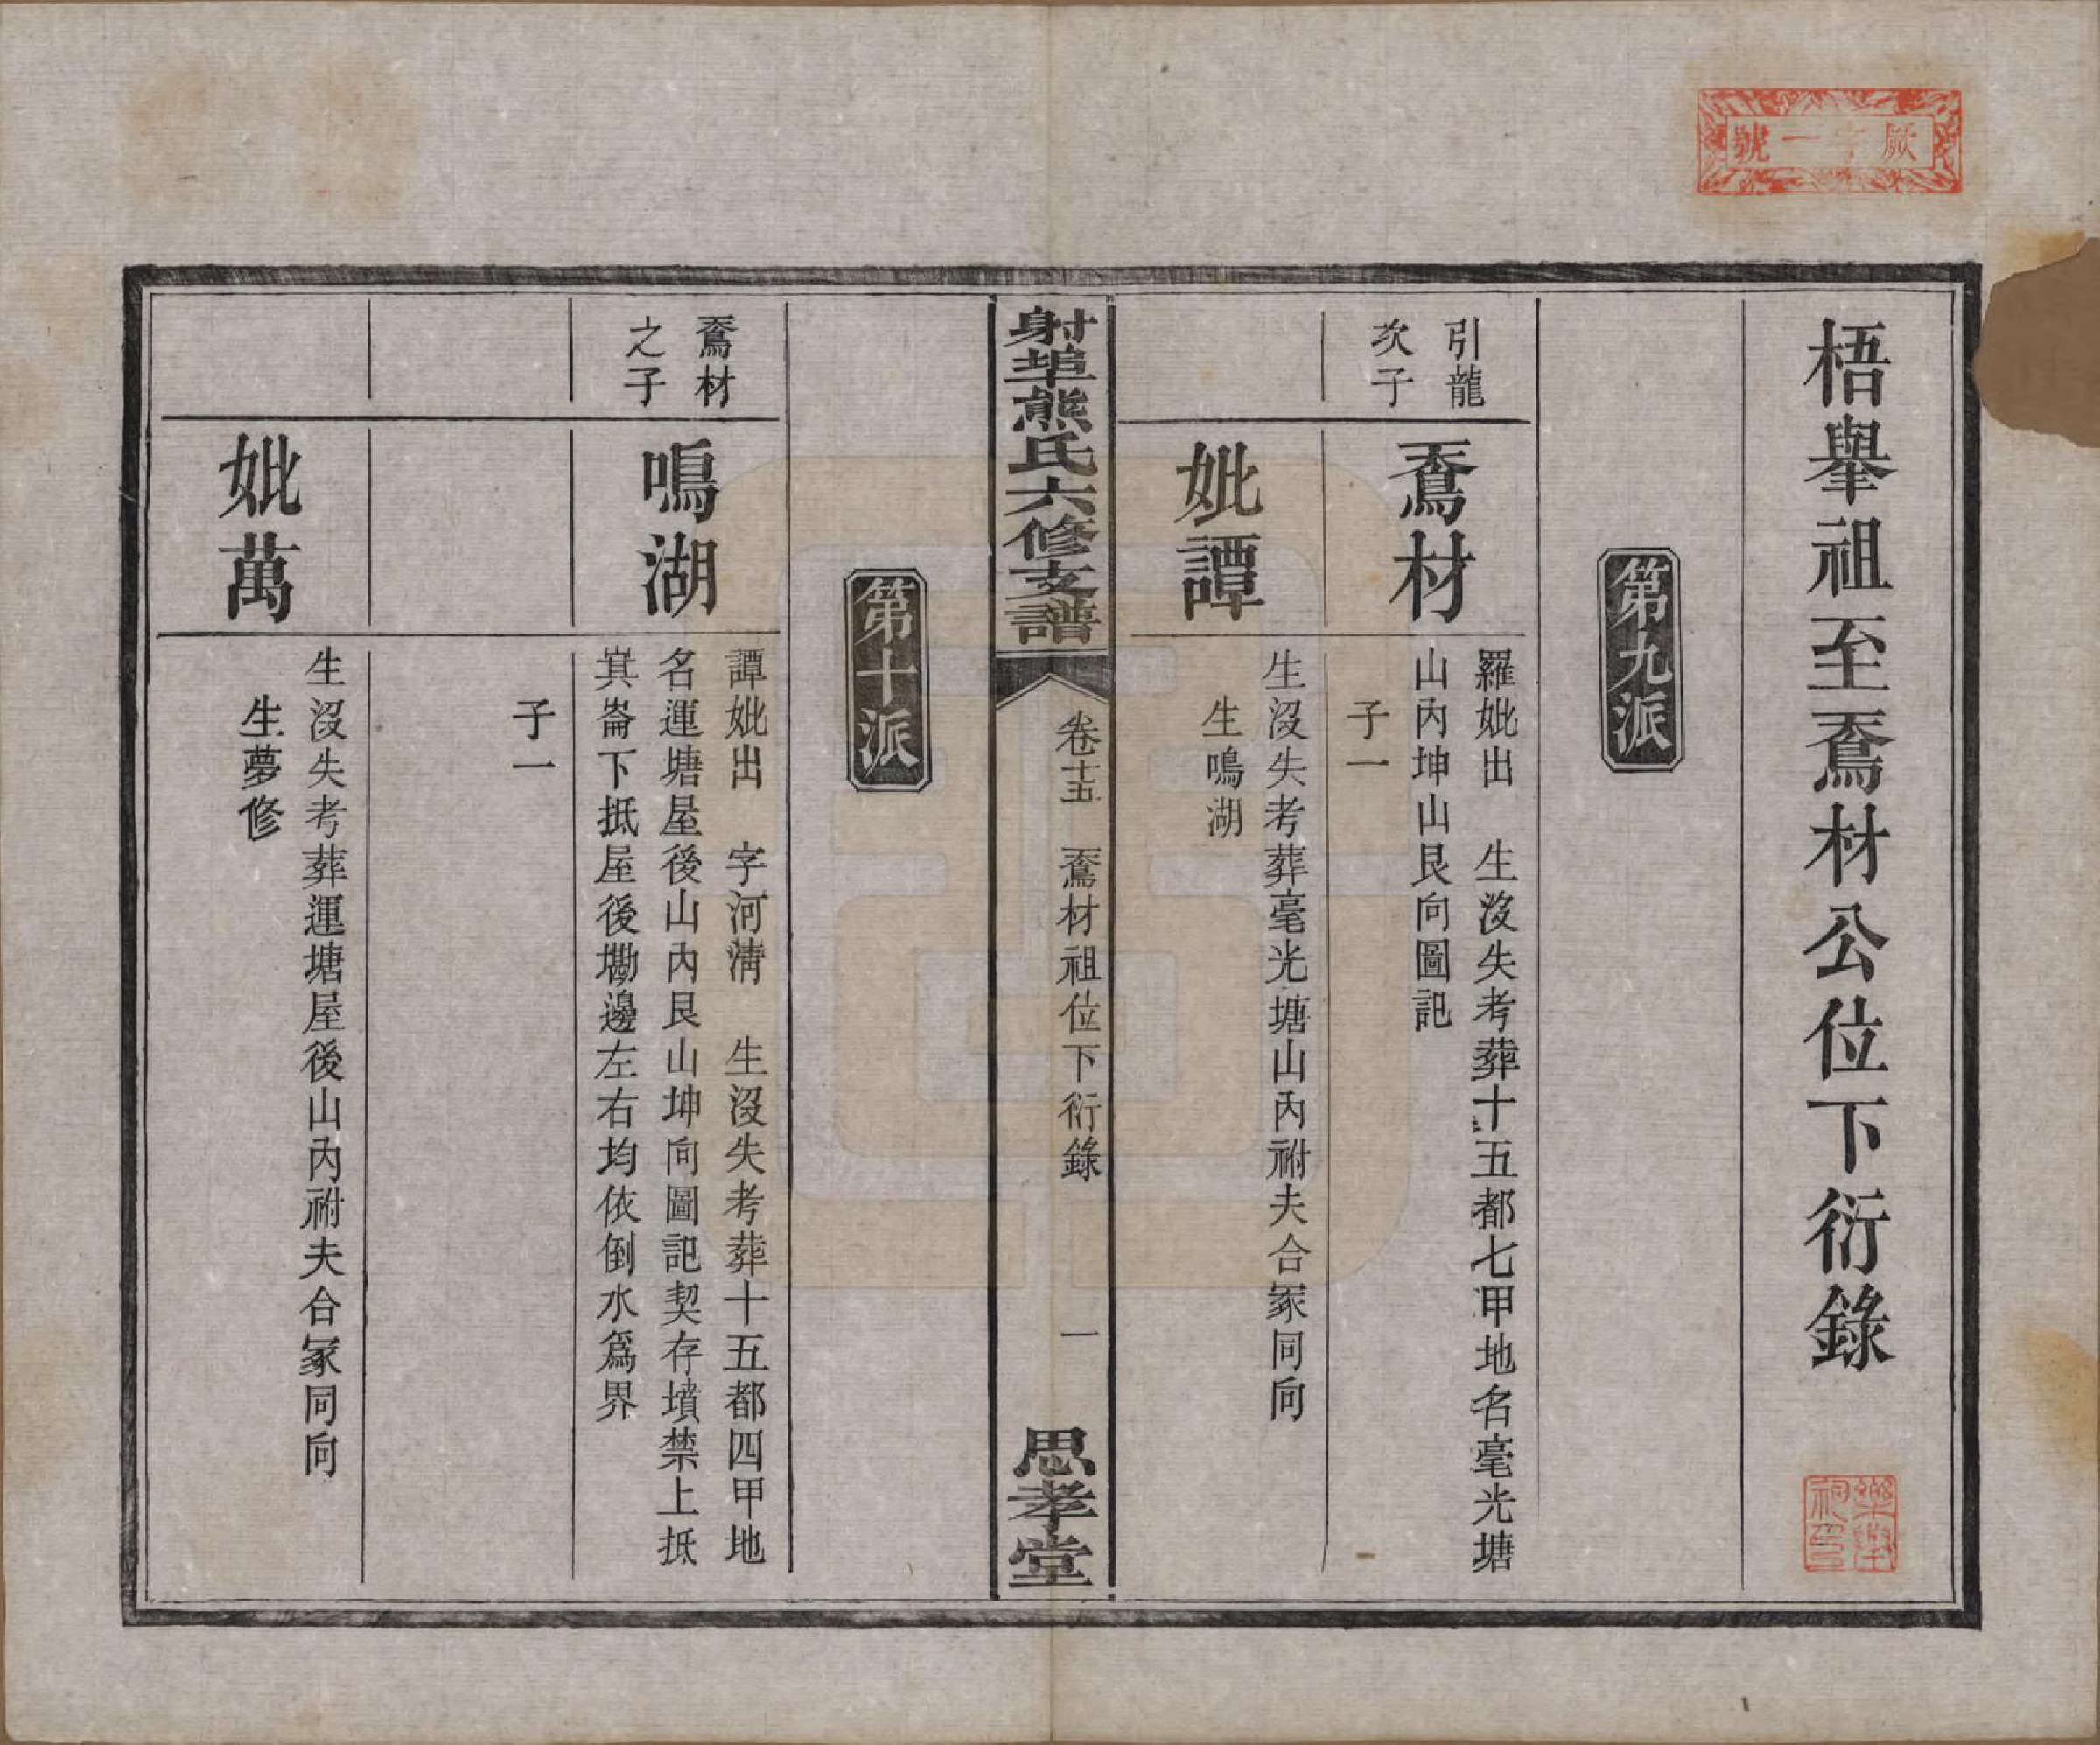 梧舉祖至鴌材公位下衍錄
第九派
引龍
次子
鴌材
羅妣出　生沒失考葬十五都七甲地名毫光塘
山內坤山艮向圖記
子一
妣譚
生沒失考葬毫光塘山內祔夫合冢同向
生鳴湖
射埠熊氏六修支譜
卷十五　鴌材祖位下衍錄　一
思孝堂
第十派
鴌材
之子
鳴湖
譚妣出　字河清　生沒失考葬十五都四甲地
名運塘屋後山內艮山坤向圖記契存墳禁上抵
崀崙下抵屋後墈邊左右均依倒水爲界
子一
妣萬
生沒失考葬運塘屋後山內祔夫合冢同向
生夢修